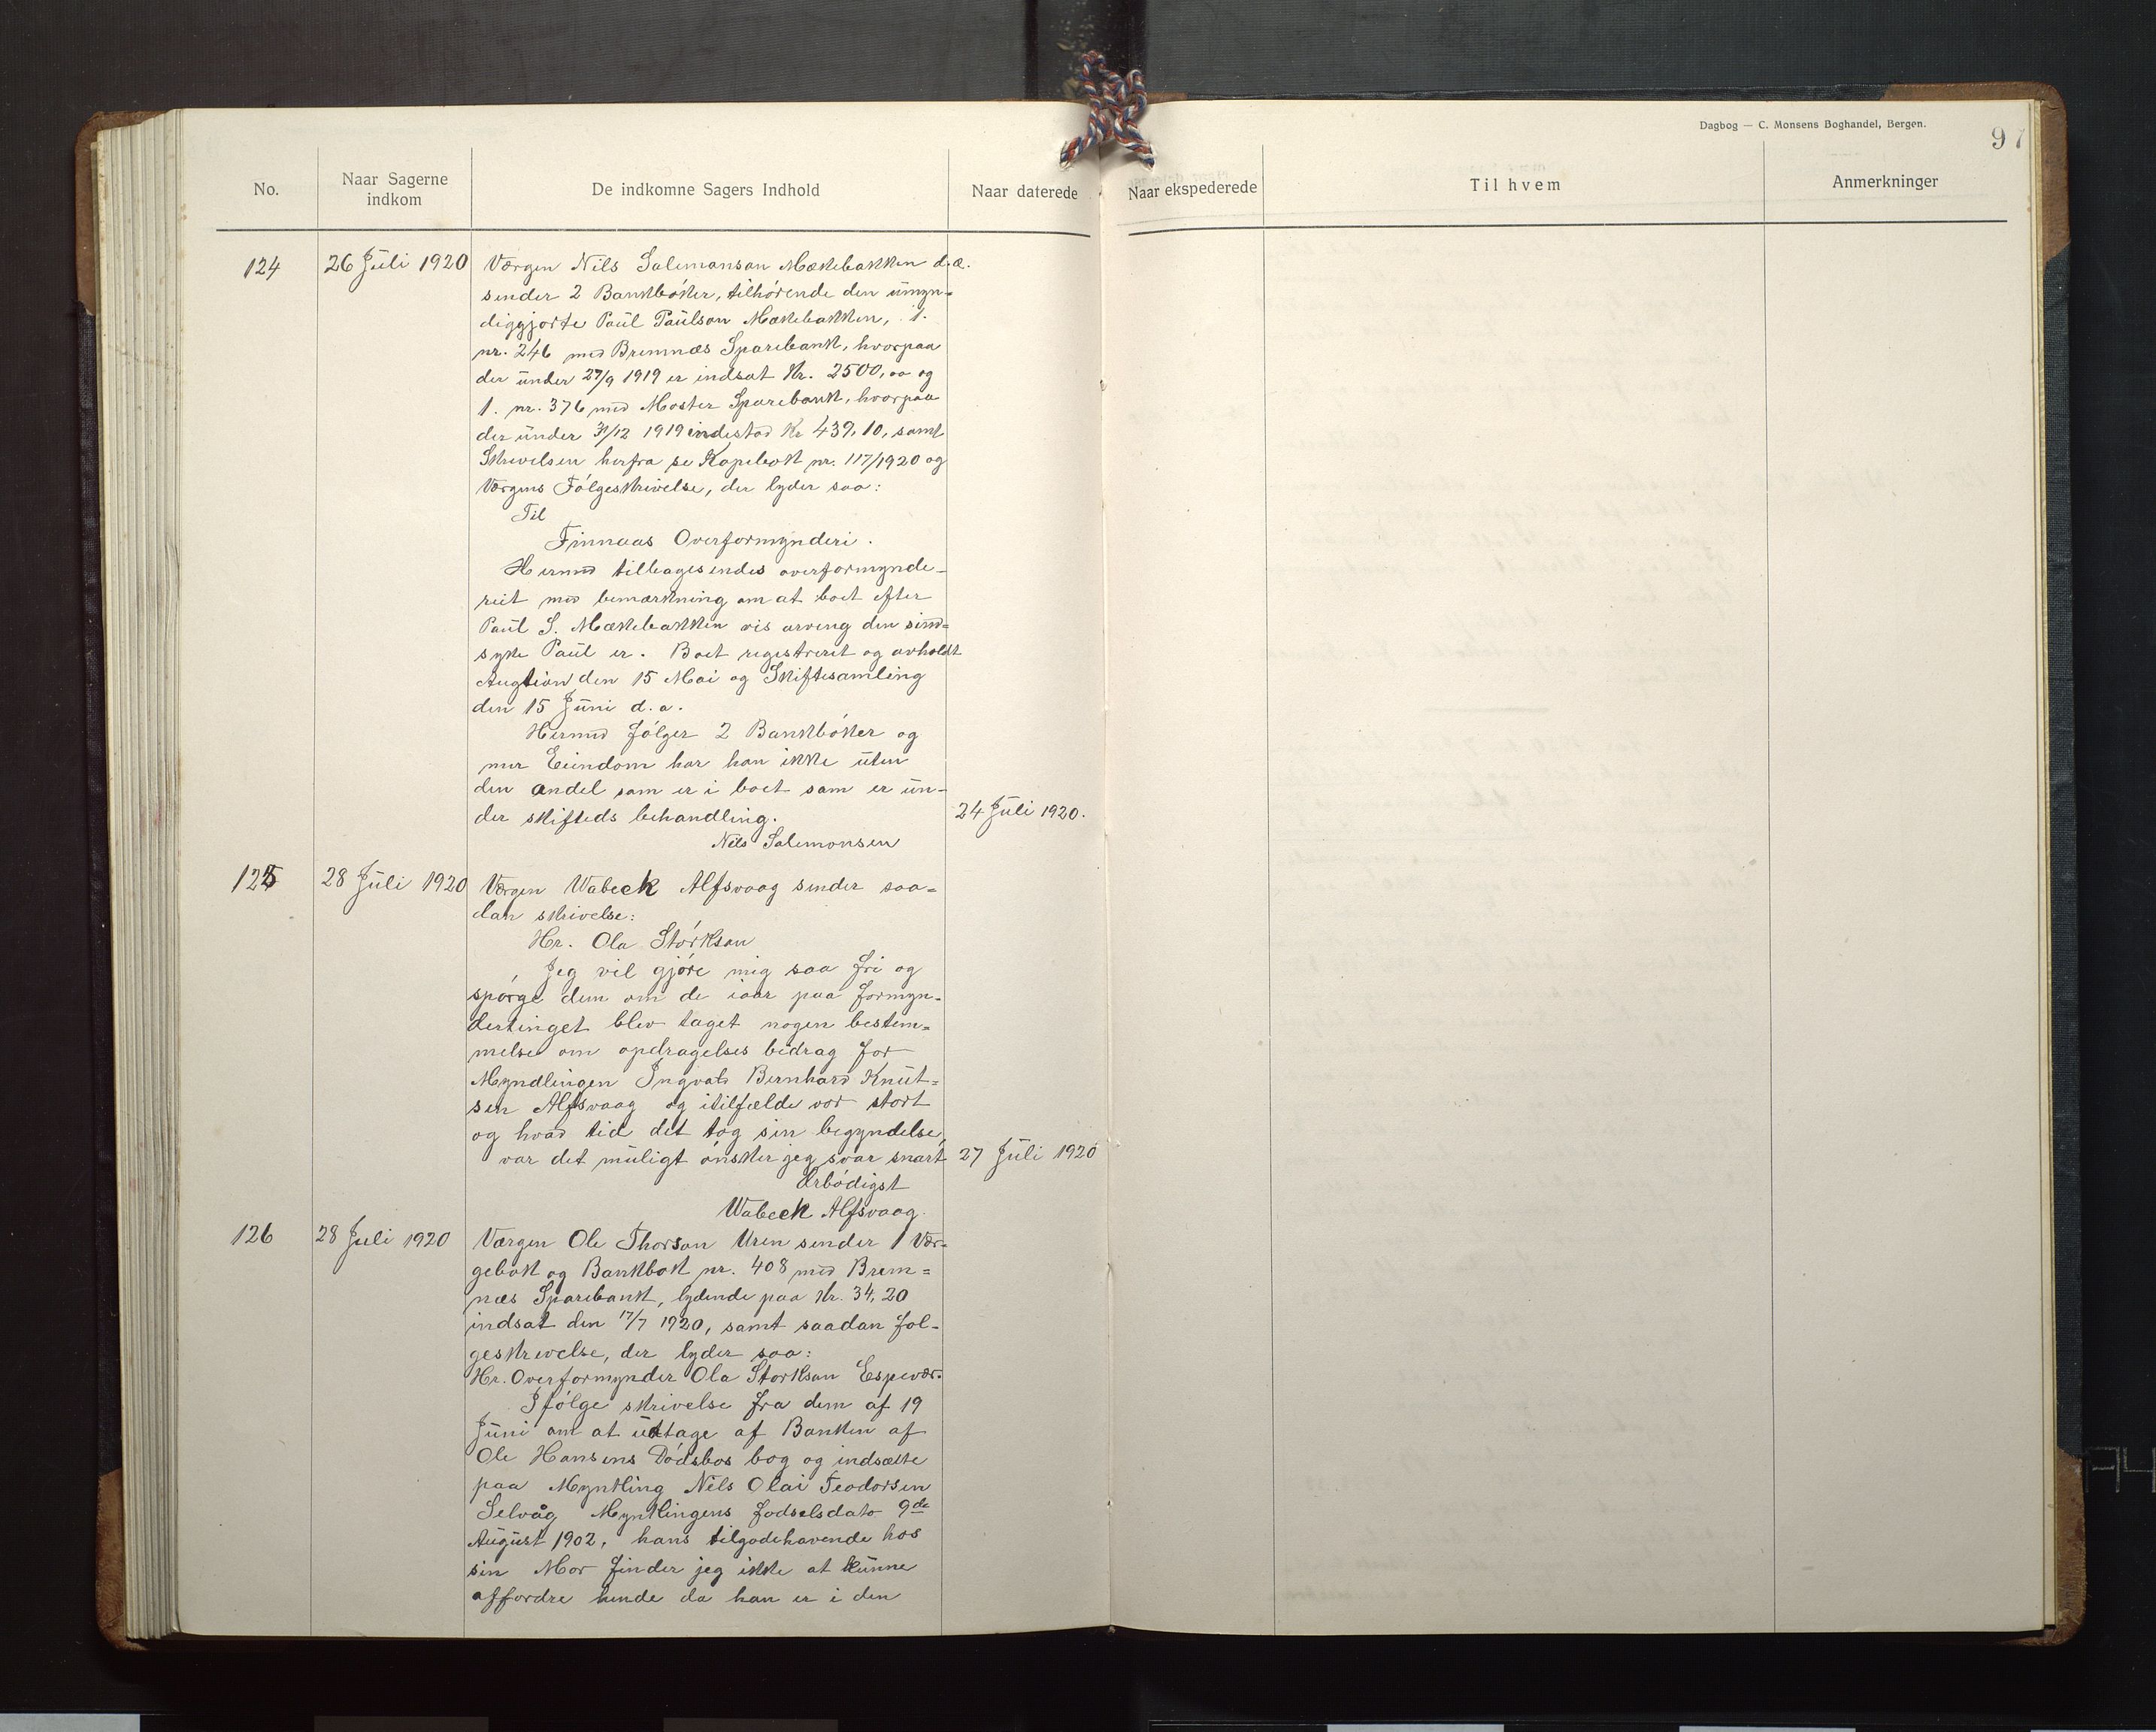 Dagbog — C. Monsens Boghandel, Bergen.
97
No.
Naar Sagerne indkom
De indkomne Sagers Indhold
Naar daterede
Naar ekspederede
Til hvem
Anmerkninger
124
26 Juli 1920
Værgen Nils Salemonson Mækebakken d.æ.
sender 2 Bankbøker, tilhørende den umyn-
diggjorte Paul Paulson Mækebakken, 1.
nr. 246 med Bremnæs Sparebank, hvorpaa
der under 27/9 1919 er indsat Kr. 2500,00 og
1. nr. 376 med Moster Sparebank, hvorpaa
der under 31/12 1919 indestod Kr 439,10, samt
Skrivelsen herfra se Kopibok nr. 117/1920 og
Værgens Følgeskrivelse, der lyder saa:
Til
Finnaas Overformynderi.
Hermed tilbagesendes overformynde-
reit med bemærkning om at boet efter
Paul S. Mækebakken vis arving den sind-
syke Paul er. Boet registreret og avholdt
Augtion den 15 Mai og Skiftesamling
den 15 Juni d.a.
Hermed følger 2 Bankbøker og
mer Eiendom har han ikke uten
den andel som er i boet som er un-
der skifteds behandling.
24 Juli 1920.
Nils Salemonsen
125
28 Juli 1920
Værgen Wabeck Alfsvaag sender saa-
dan skrivelse:
Hr. Ola Størkson
Jeg vil gjøre mig saa fri og
spørge dem om de iaar paa formyn-
dertinget blev taget nogen bestem-
melse om opdragelses bidrag for
Myndlingen Ingvald Bernhard Knut-
sen Alfsvaag og itilfælde vor stort
og hvad tid det tog sin begyndelse,
var det muligt ønsker jeg svar snart
27 Juli 1920
Ærbødigst
Wabeck Alfsvaag.
126
28 Juli 1920
Værgen Ole Thorson Uren sender 1 Vær-
gebok og Bankbok nr. 408 med Brem-
næs Sparebank, lydende paa Kr. 34,20
indsat den 17/7 1920, samt saadan føl-
geskrivelse, der lyder saa:
Hr. Overformynder Ola Storkson Espevær.
Ifølge skrivelse fra dem af 19
Juni om at udtage af Banken af
Ole Hansens Dødsbos bog og indsætte
paa Myntling Nils Olai Teodorsen
Selvåg Myntlingens fødselsdato 9de
August 1902, hans tilgodehavende hos
sin Mor finder jeg ikke at kunne
affordre hende da han er i den